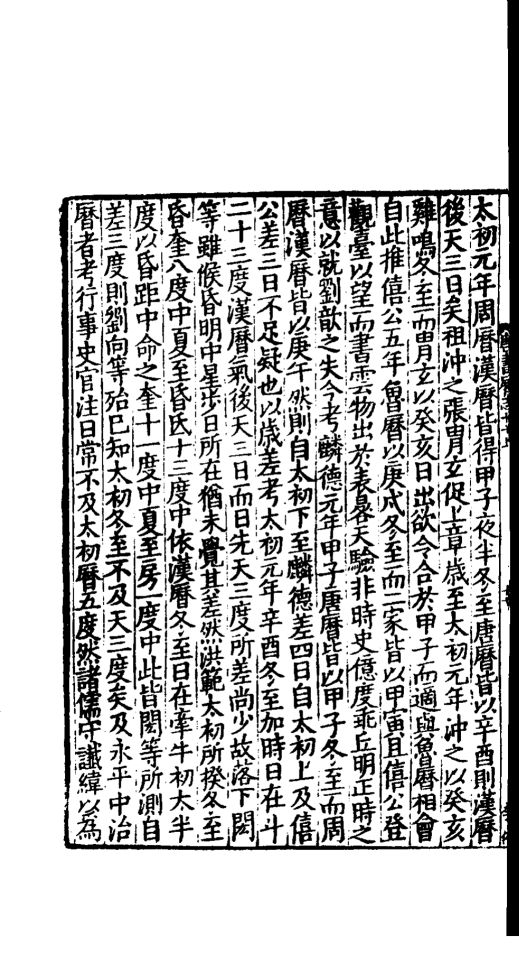 太初元年周曆漢曆皆得甲子夜半冬至唐曆皆以辛酉則漢曆
後天三日矣祖沖之張胄玄促上章歲至太初元年沖之以癸亥
雞鳴冬至而胄玄以癸亥日出欲令合於甲子而適與魯曆相會
自此推僖公五年魯曆以庚戌冬至而二家皆以甲寅且僖公登
觀臺以望而書雲物出於表晷天驗非時史億度乖丘明正時之
意以就劉歆之失今考麟德元年甲子唐曆皆以甲子冬至而周
曆漢曆皆以庚午然則自太初下至麟德差四日自太初上及僖
公差三日不足疑也以歲差考太初元年辛酉冬至加時日在斗
二十三度漢曆氣後天三日而日先天三度所差尚少故落下閎
等雖候昏明中星步日所在猶未覺其差然洪範太初所揆冬至
昏奎八度中夏至昏氐十三度中依漢曆冬至日在牽牛初太半
度以昏距中命之奎十一度中夏至房一度中此皆閎等所測自
差三度則劉向等殆已知太初冬至不及天三度矣及永平中治
曆者考行事史官注日常不及太初曆五度然諸儒守讖緯以為